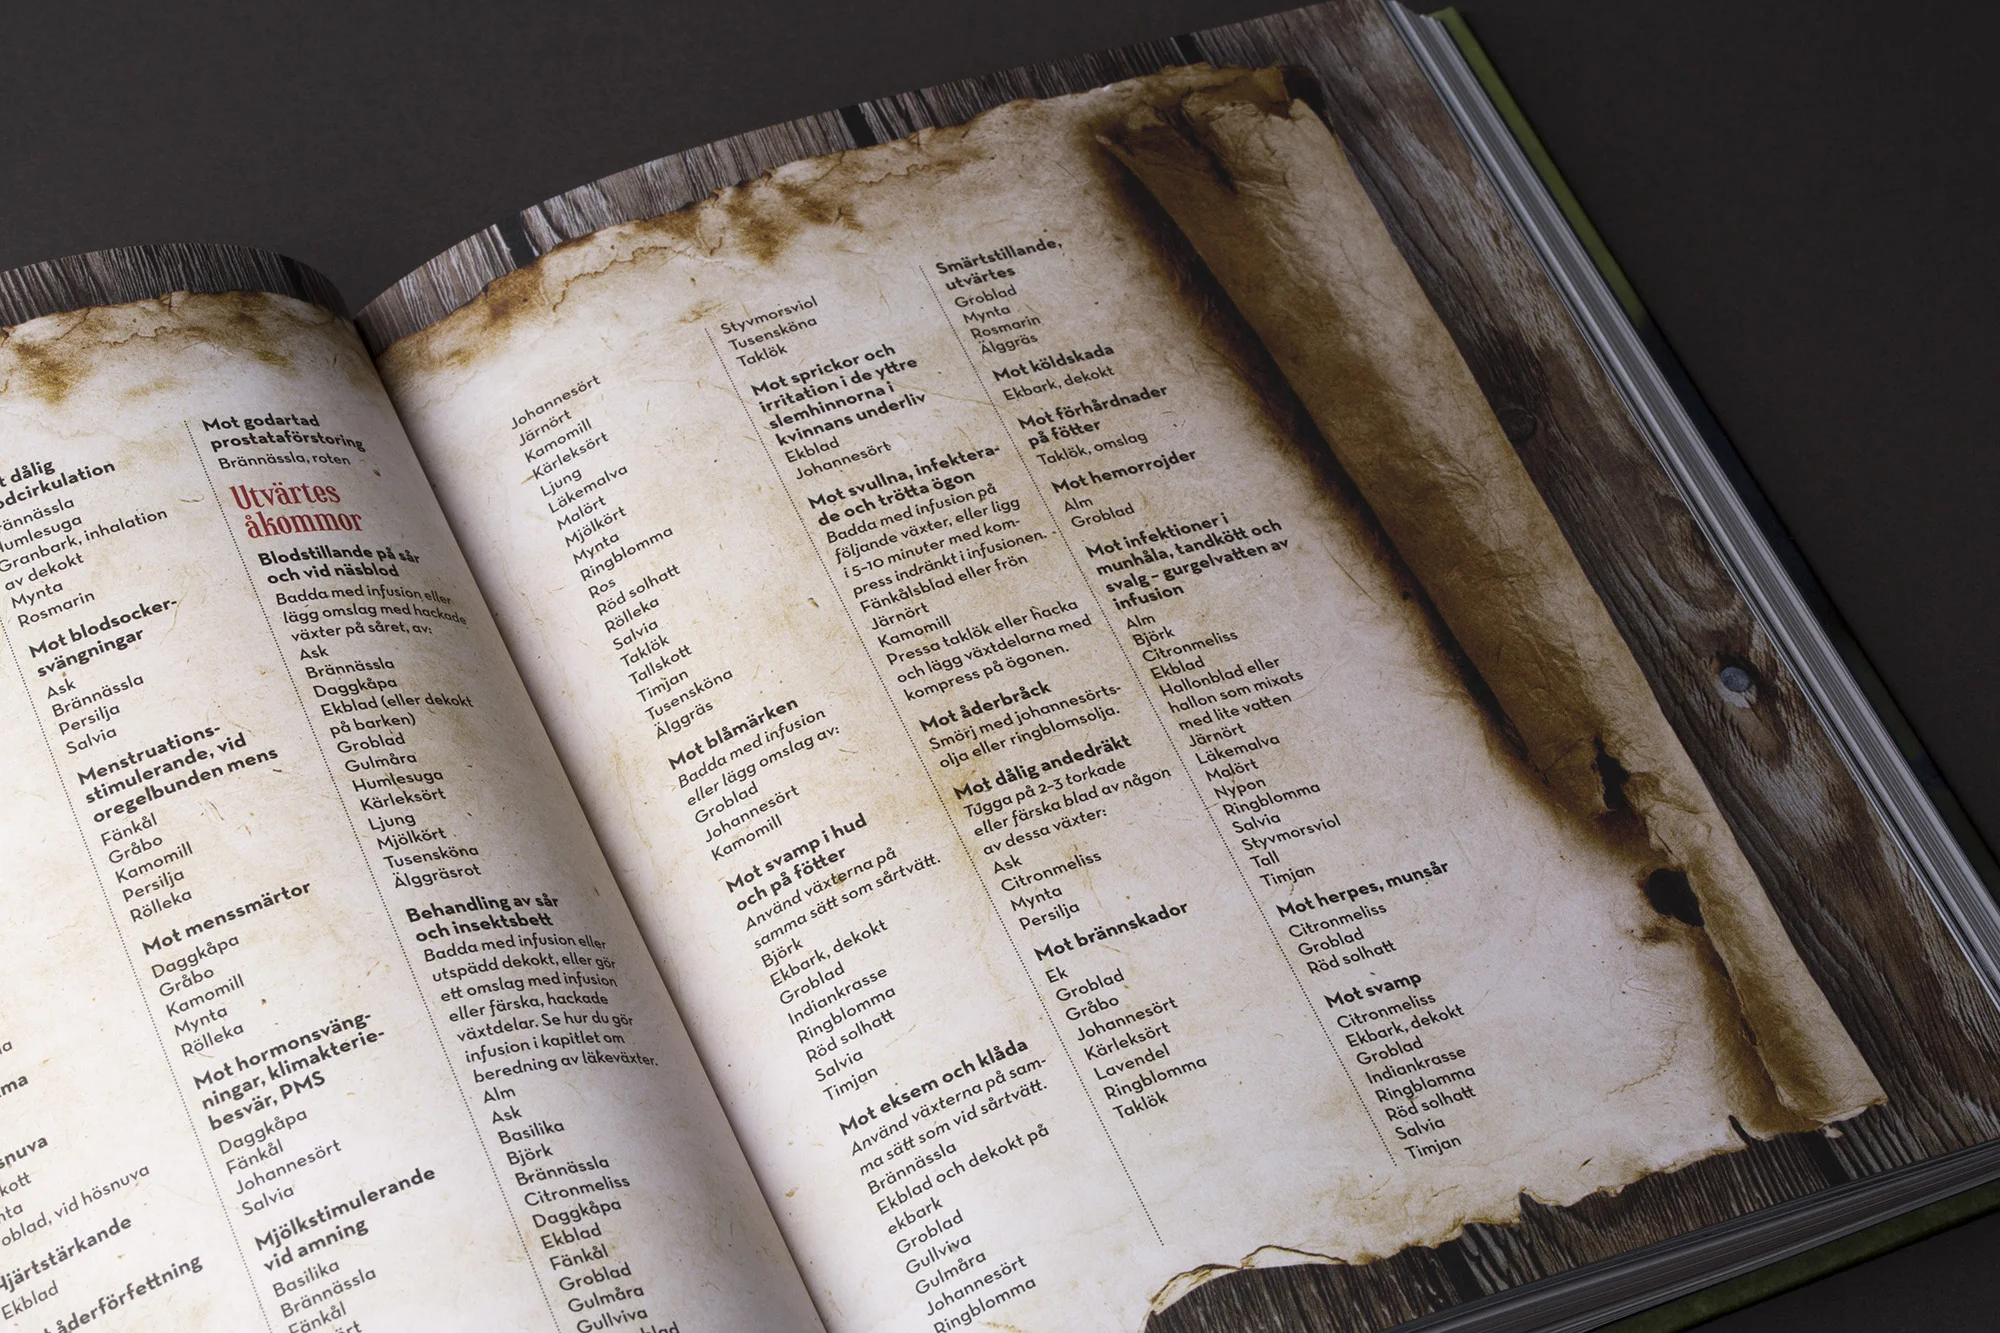 dålig
ännässla
umlesuga
Granbark, inhalation
av dekott
Mynta
Rosmarin
Mot blodsocker-
svängningar
Ask
Brännässla
Persilja
Salvia
Menstruations-
stimulerande, vid
oregelbunden mens
Fänkål
Gråbo
Kamomill
Persilja
Rölleka
Mot menssmärtor
Daggkåpa
Gråbo
Kamomill
Mynta
Rölleka
Mot hormonsväng-
ningar, klimakterie-
besvär, PMS
Daggkåpa
Fänkål
Johannesört
Salvia
Mjölkstimulerande
vid amning
Basilika
Brännässla
Fänkål
vid hösnuva
Hjärtstärkande
Ekblad
åderförfettning
Mot godartad
prostataförstoring
Brännässla, roten
Utvärtes
åkommor
Blodstillande på sår
och vid näsblod
Badda med infusion eller
lägg omslag med hackade
växter på såret, av:
Ask
Brännässla
Daggkåpa
Ekblad (eller dekokt
på barken)
Groblad
Gulmåra
Humlesuga
Kärleksört
Ljung
Mjölkört
Tusensköna
Älggräsrot
Behandling av sår
och insektsbett
Badda med infusion eller
utspädd dekokt, eller gör
ett omslag med infusion
eller färska, hackade
växtdelar. Se hur du gör
infusion i kapitlet om
beredning av läkeväxter.
Alm
Ask
Basilika
Björk
Brännässla
Citronmeliss
Daggkåpa
Ekblad
Fänkål
Groblad
Gulmåra
Gullviva
Johannesört
Järnört
Kamomill
Kärleksört
Ljung
Läkemalva
Malört
Mjölkört
Mynta
Ringblomma
Ros
Röd solhatt
Rölleka
Salvia
Taklök
Tallskott
Timjan
Tusensköna
Älggräs
Mot blåmärken
Badda med infusion
eller lägg omslag av:
Groblad
Johannesört
Kamomill
Mot svamp i hud
och på fötter
Använd växterna på
samma sätt som sårtvätt.
Björk
Ekbark, dekokt
Groblad
Indiankrasse
Ringblomma
Röd solhatt
Salvia
Timjan
Mot eksem och klåda
Använd växterna på sam-
ma sätt som vid sårtvätt.
Brännässla
Ekblad och dekokt på
ekbark
Groblad
Gullviva
Gulmåra
Johannesört
Ringblomma
Styvmorsviol
Tusensköna
Taklök
Mot sprickor och
irritation i de yttre
slemhinnorna i
kvinnans underliv
Ekblad
Johannesört
Mot svullna, infektera-
de och trötta ögon
Badda med infusion på
följande växter, eller ligg
i 5–10 minuter med kom-
press indränkt i infusionen.
Fänkålsblad eller frön
Järnört
Kamomill
Pressa taklök eller hacka
och lägg växtdelarna med
kompress på ögonen.
Mot åderbråck
Smörj med johannesörts-
olja eller ringblomsolja.
Mot dålig andedräkt
Tugga på 2–3 torkade
eller färska blad av någon
av dessa växter:
Ask
Citronmeliss
Mynta
Persilja
Mot brännskador
Ek
Groblad
Gråbo
Johannesört
Kärleksört
Lavendel
Ringblomma
Taklök
Smärtstillande,
utvärtes
Groblad
Mynta
Rosmarin
Älggräs
Mot köldskada
Ekbark, dekokt
Mot förhårdnader
på fötter
Taklök, omslag
Mot hemorrojder
Alm
Groblad
Mot infektioner i
munhåla, tandkött och
svalg – gurgelvatten av
infusion
Alm
Björk
Citronmeliss
Ekblad
Hallonblad eller
hallon som mixats
med lite vatten
Järnört
Läkemalva
Malört
Nypon
Ringblomma
Salvia
Styvmorsviol
Tall
Timjan
Mot herpes, munsår
Citronmeliss
Groblad
Röd solhatt
Mot svamp
Citronmeliss
Ekbark, dekokt
Groblad
Indiankrasse
Ringblomma
Röd solhatt
Salvia
Timjan